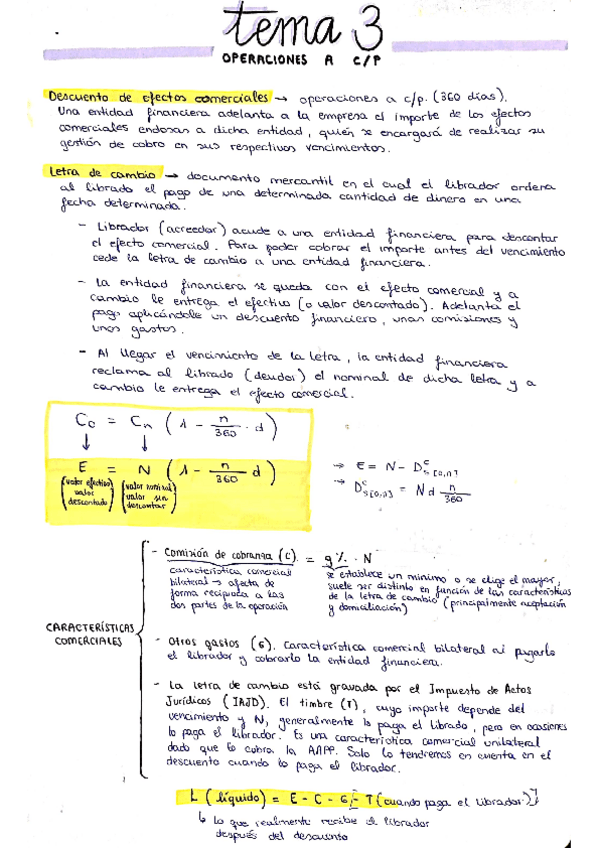 tema 3
OPERACIONES A C/P
Descuento de efectos comerciales → operaciones a c/p. (360 días).
Una entidad financiera adelanta a la empresa el importe de los efectos
comerciales endosas a dicha entidad, quien se encargará de realizar su
gestión de cobro en sus respectivos vencimientos.
Letra de cambio → documento mercantil en el cual el librador ordena
al librado el pago de una determinada cantidad de dinero en una
fecha determinada.
- Librador (acreedor) acude a una entidad financiera para descontar
el efecto comercial. Para poder cobrar el importe antes del vencimiento
cede la letra de cambio a una entidad financiera.
- La entidad financiera se queda con el efecto comercial y a
cambio le entrega el efectivo (o valor descontado). Adelanta el
pago aplicándole un descuento financiero, unas comisiones y
unos gastos.
- Al llegar el vencimiento de la letra, la entidad financiera
reclama al librado (deudor) el nominal de dicha letra y a
cambio le entrega el efecto comercial.
C₀ = Cₙ (1 - n/360 · d)
↓ ↓
E = N (1 - n/360 d)
(valor efectivo) (valor nominal)
valor valor sin
descontado descontar
→ E = N - Dᶜs[0,n]
→ Dᶜs[0,n] = N d n/360
CARACTERÍSTICAS
COMERCIALES
- Comisión de cobranza (C) = g% · N
característica comercial
bilateral → afecta de
forma recíproca a las
dos partes de la operación
se establece un mínimo o se elige el mayor,
suele ser distinto en función de las características
de la letra de cambio (principalmente aceptación
y domiciliación)
- Otros gastos (G). Característica comercial bilateral al pagarlo
el librador y cobrarlo la entidad financiera.
- La letra de cambio está gravada por el Impuesto de Actos
Jurídicos (IAJD). El timbre (T), cuyo importe depende del
vencimiento y N, generalmente lo paga el librado, pero en ocasiones
lo paga el librador. Es una característica comercial unilateral
dado que lo cobra la AAPP. Solo lo tendremos en cuenta en el
descuento cuando lo paga el librador.
L (líquido) = E - C - G [- T (cuando paga el librador)]
↳ lo que realmente recibe el librador
después del descuento